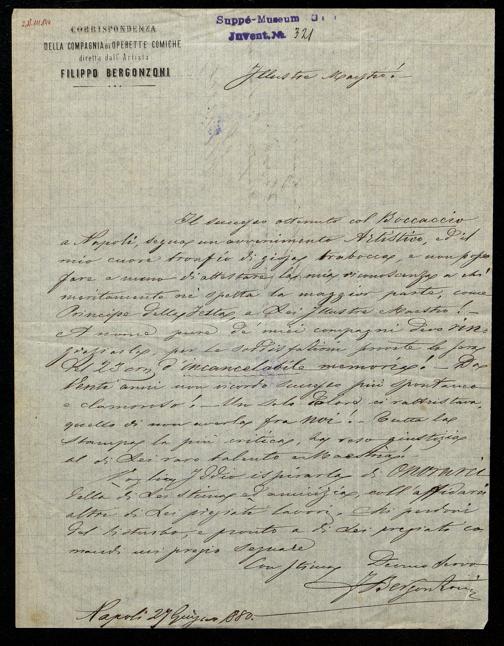 Suppé-Museum
Juvent. № 321
CORRISPONDENZA
DELLA COMPAGNIA DI OPERETTE COMICHE
diretta dall'Artista
FILIPPO BERGONZONI
Illustre Maestro!
Il successo ottenuto col Boccaccio
a Napoli, segna un avvenimento Artistico, ed il
mio cuore gioja trabocca, e non posso
fare a meno di attestare la mia riconoscenza a chi
meritamente ne spetta la maggior parte, come
Principe della festa, a Lei Illustre Maestro!
A nome pure de' miei compagni devo rin-
graziarla per le soddisfazioni provate la sera
del 23 d'incancelabile memoria! Da
Venti anni non ricordo successo più spontaneo
e clamoroso! Un solo dolore ci rattristava,
quello di non averla fra noi! Tutta la
stampa la più critica, ha reso giustizia
al di Lei raro talento
Voglia Iddio ispirarla di onorarci
della di Lei stima ed amicizia, coll'affidarci
altri di Lei pregiati lavori. Mi perdoni
del disturbo, e pronto a di Lei pregiato co-
mandi mi pregio segnare
Con stima Devmo Servo
F Bergonzoni
Napoli 27 Giugno 1880.